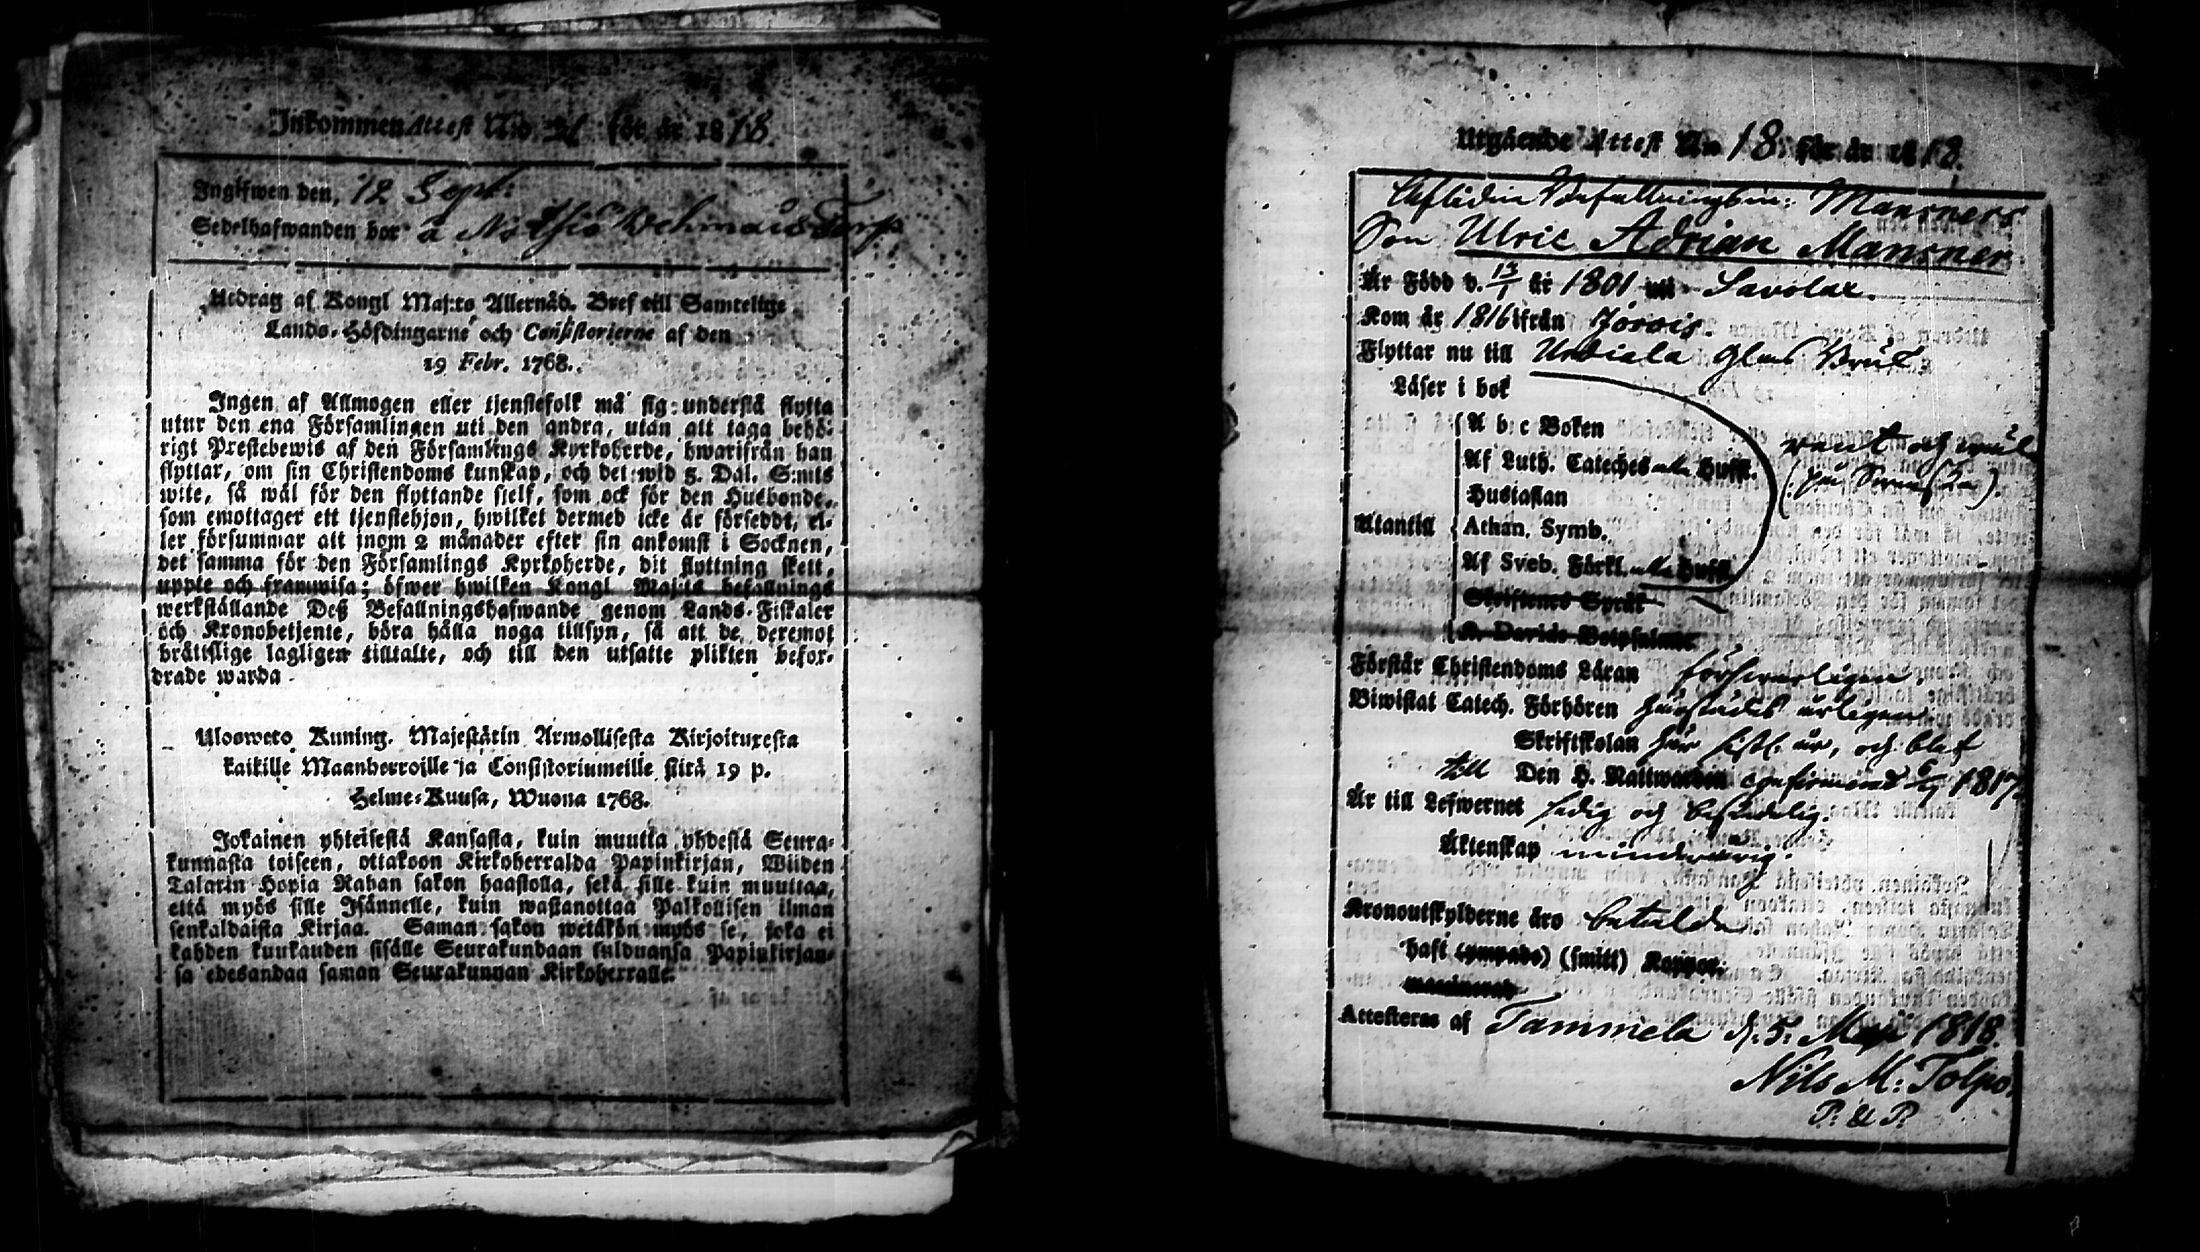 Inkommen Attest N:o 21 för år 1818.
Ingifwen den, 12 Sept:
Sedelhafwanden bor å Nötsiö Torp
Utdrag af Kongl Maj:ts Allernåd. Bref till Samtelige
Lands-Höfdingarne och Consistorierne af den
19 Febr. 1768.
Ingen af Allmogen eller tjenstefolk må sig understå flytta
utur den ena Församlingen uti den andra, utan att taga behö-
rigt Prestebewis af den Församlings Kyrkoherde, hwarifrån han
flyttar, om sin Christendoms kunskap, och det wid 5. Dal. S:mts
wite, så wäl för den flyttande sielf, som ock för den Husbonde,
som emottager ett tjenstehjon, hwilket dermed icke är försedt, el-
ler försummar att inom 2 månader efter sin ankomst i Socknen,
det samma för den Församlings Kyrkoherde, dit flyttning skett,
uppte och framwisa; öfwer hwilken Kongl Maj:ts befallnings
werkställande Deß Befallningshafwande genom Lands-Fiskaler
och Kronobetjente, böra hålla noga tillsyn, så att de deremot
bråttslige lagligen tilltalte, och till den utsatte plikten befor-
drade warda.
Ulosweto Kuning. Majestätin Armollisesta Kirjoituxesta
kaikille Maanherroille ja Consistoriumeille siitä 19 p.
Helme-Kuusa, Wuona 1768.
Jokainen yhteisestä Kansasta, kuin muutta yhdestä Seura-
kunnasta toiseen, ottakoon Kirkoherralda Papinkirjan, Wiiden
Talarin Hopia Rahan sakon haastolla, sekä sille kuin muuttaa,
että myös sille Isännelle, kuin wastanottaa Palkollisen ilman
senkaldaista Kirjaa. Saman sakon wetäkön myös se, joka ei
kahden kuukauden sisälle Seurakundaan tulduansa Papinkirjan-
sa edesandaa saman Seurakunnan Kirkoherralle.
Utgående Attest N:o 18. för år 1818.
Aflidin Befallningsm: Mansners
Son Ulric Adrian Mansner
Är Född d. 13/1 år 1801 uti Savolax.
Kom år 1816 ifrån Jorois.
Flyttar nu till Urdiala Glas Bruk
Läser i bok
A b c Boken
Af Luth. Cateches alla Huffst.
rent och wäl
(på Svenska).
Hustaflan
Utantill Athan. Symb.
Af Sveb. Förkl. alla Huffst.
Skriftenes Språk
K. Davids Botpsalmer
Förstår Christendoms Läran försvarligen
Biwistat Catech. Förhören härstädes årligen
Skriftskolan här sistl. år, och blef
till Den H. Nattwarden confirmerad 6/7 1817.
Är till Lefwernet sedig och beskedelig.
Äktenskap minderårig.
Kronoutskylderne äro betalde
haft (ympade) (smitt) Koppor.
Attesteras af Tammela d. 5. Maji 1818.
Nils M: Tolpo.
P. & P.